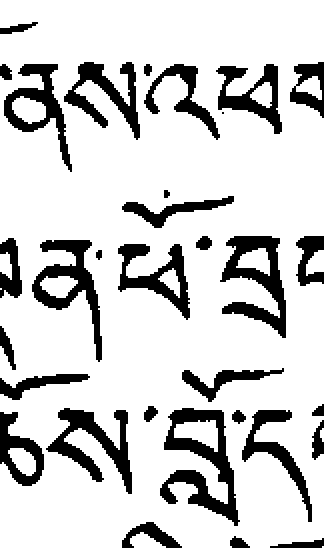 ནས་འཕ
ན་ཕོ་བྲ
ཆོས་བློ་ད